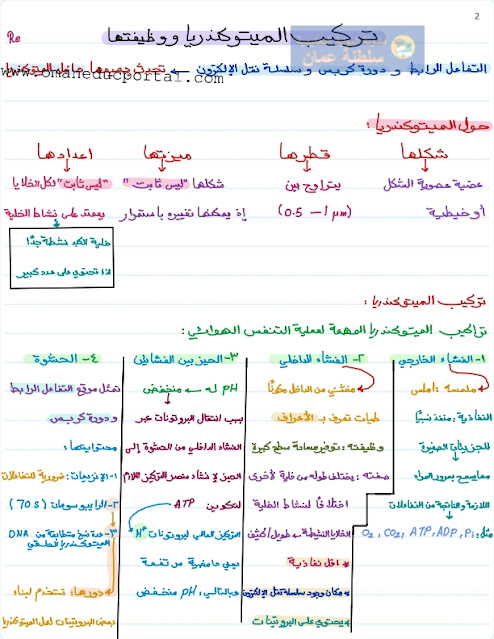 2
Re
تركيب الميتوكندريا ووظيفتها
سلطنة عمان
التفاعل الرابط و دورة كربس و سلسلة نقل الإلكترون ← تحدث جميعها داخل الميتوكندريا
www.omaneducportal.com
حول الميتوكندريا :
شكلها
عضية عصوية الشكل
أو خيطية
قطرها
يتراوح بين
(0.5 – 1 μm)
ميزتها
شكلها "ليس ثابت"
إذ يمكنها تغييره باستمرار
اعدادها
"ليس ثابت" لكل الخلايا
يعتمد على نشاط الخلية
خلية الكبد نشطة جدًا
لذا تحتوي على عدد كبير
تركيب الميتوكندريا :
تراكيب الميتوكندريا المهمة لعملية التنفس الهوائي :
١- الغشاء الخارجي
ملمسه : أملس
النفاذية : منفذ نسبيًا
للجزيئات الصغيرة
مما يسمح بمرور المواد
اللازمة والناتجة من التفاعلات
مثل : O₂, CO₂, ATP, ADP, Pi
٢- الغشاء الداخلي
منثني من الداخل مكونًا
طيات تعرف بـ الأعراف
وظيفته : توفير مساحة سطح كبيرة
صفته : يختلف طوله من خلية لأخرى
اختلافًا لنشاط الخلية
الخلايا النشيطة ← طويل / كثيف
اقل نفاذية
مكان وجود سلسلة نقل الإلكترون
يحتوي على البروتينات
٣- الحيز بين الغشائين
pH له ← منخفض
بسبب انتقال البروتونات عبر
الغشاء الداخلي من الحشوة إلى
الحيز لإنشاء منحدر التركيز اللازم
لتكوين ATP
التركيز العالي لبروتونات H⁺
يعني حامضية مرتفعة
وبالتالي : pH منخفض
٤- الحشوة
تمثل موقع التفاعل الرابط
ودورة كربس
محتوياتها :
١- الإنزيمات : ضرورية للتفاعلات
٢- الرايبوسومات (70S)
٣- عدة نسخ متطابقة من DNA
الميتوكندريا الحلقي
دورها : تستخدم لبناء
بعض البروتينات لعمل الميتوكندريا